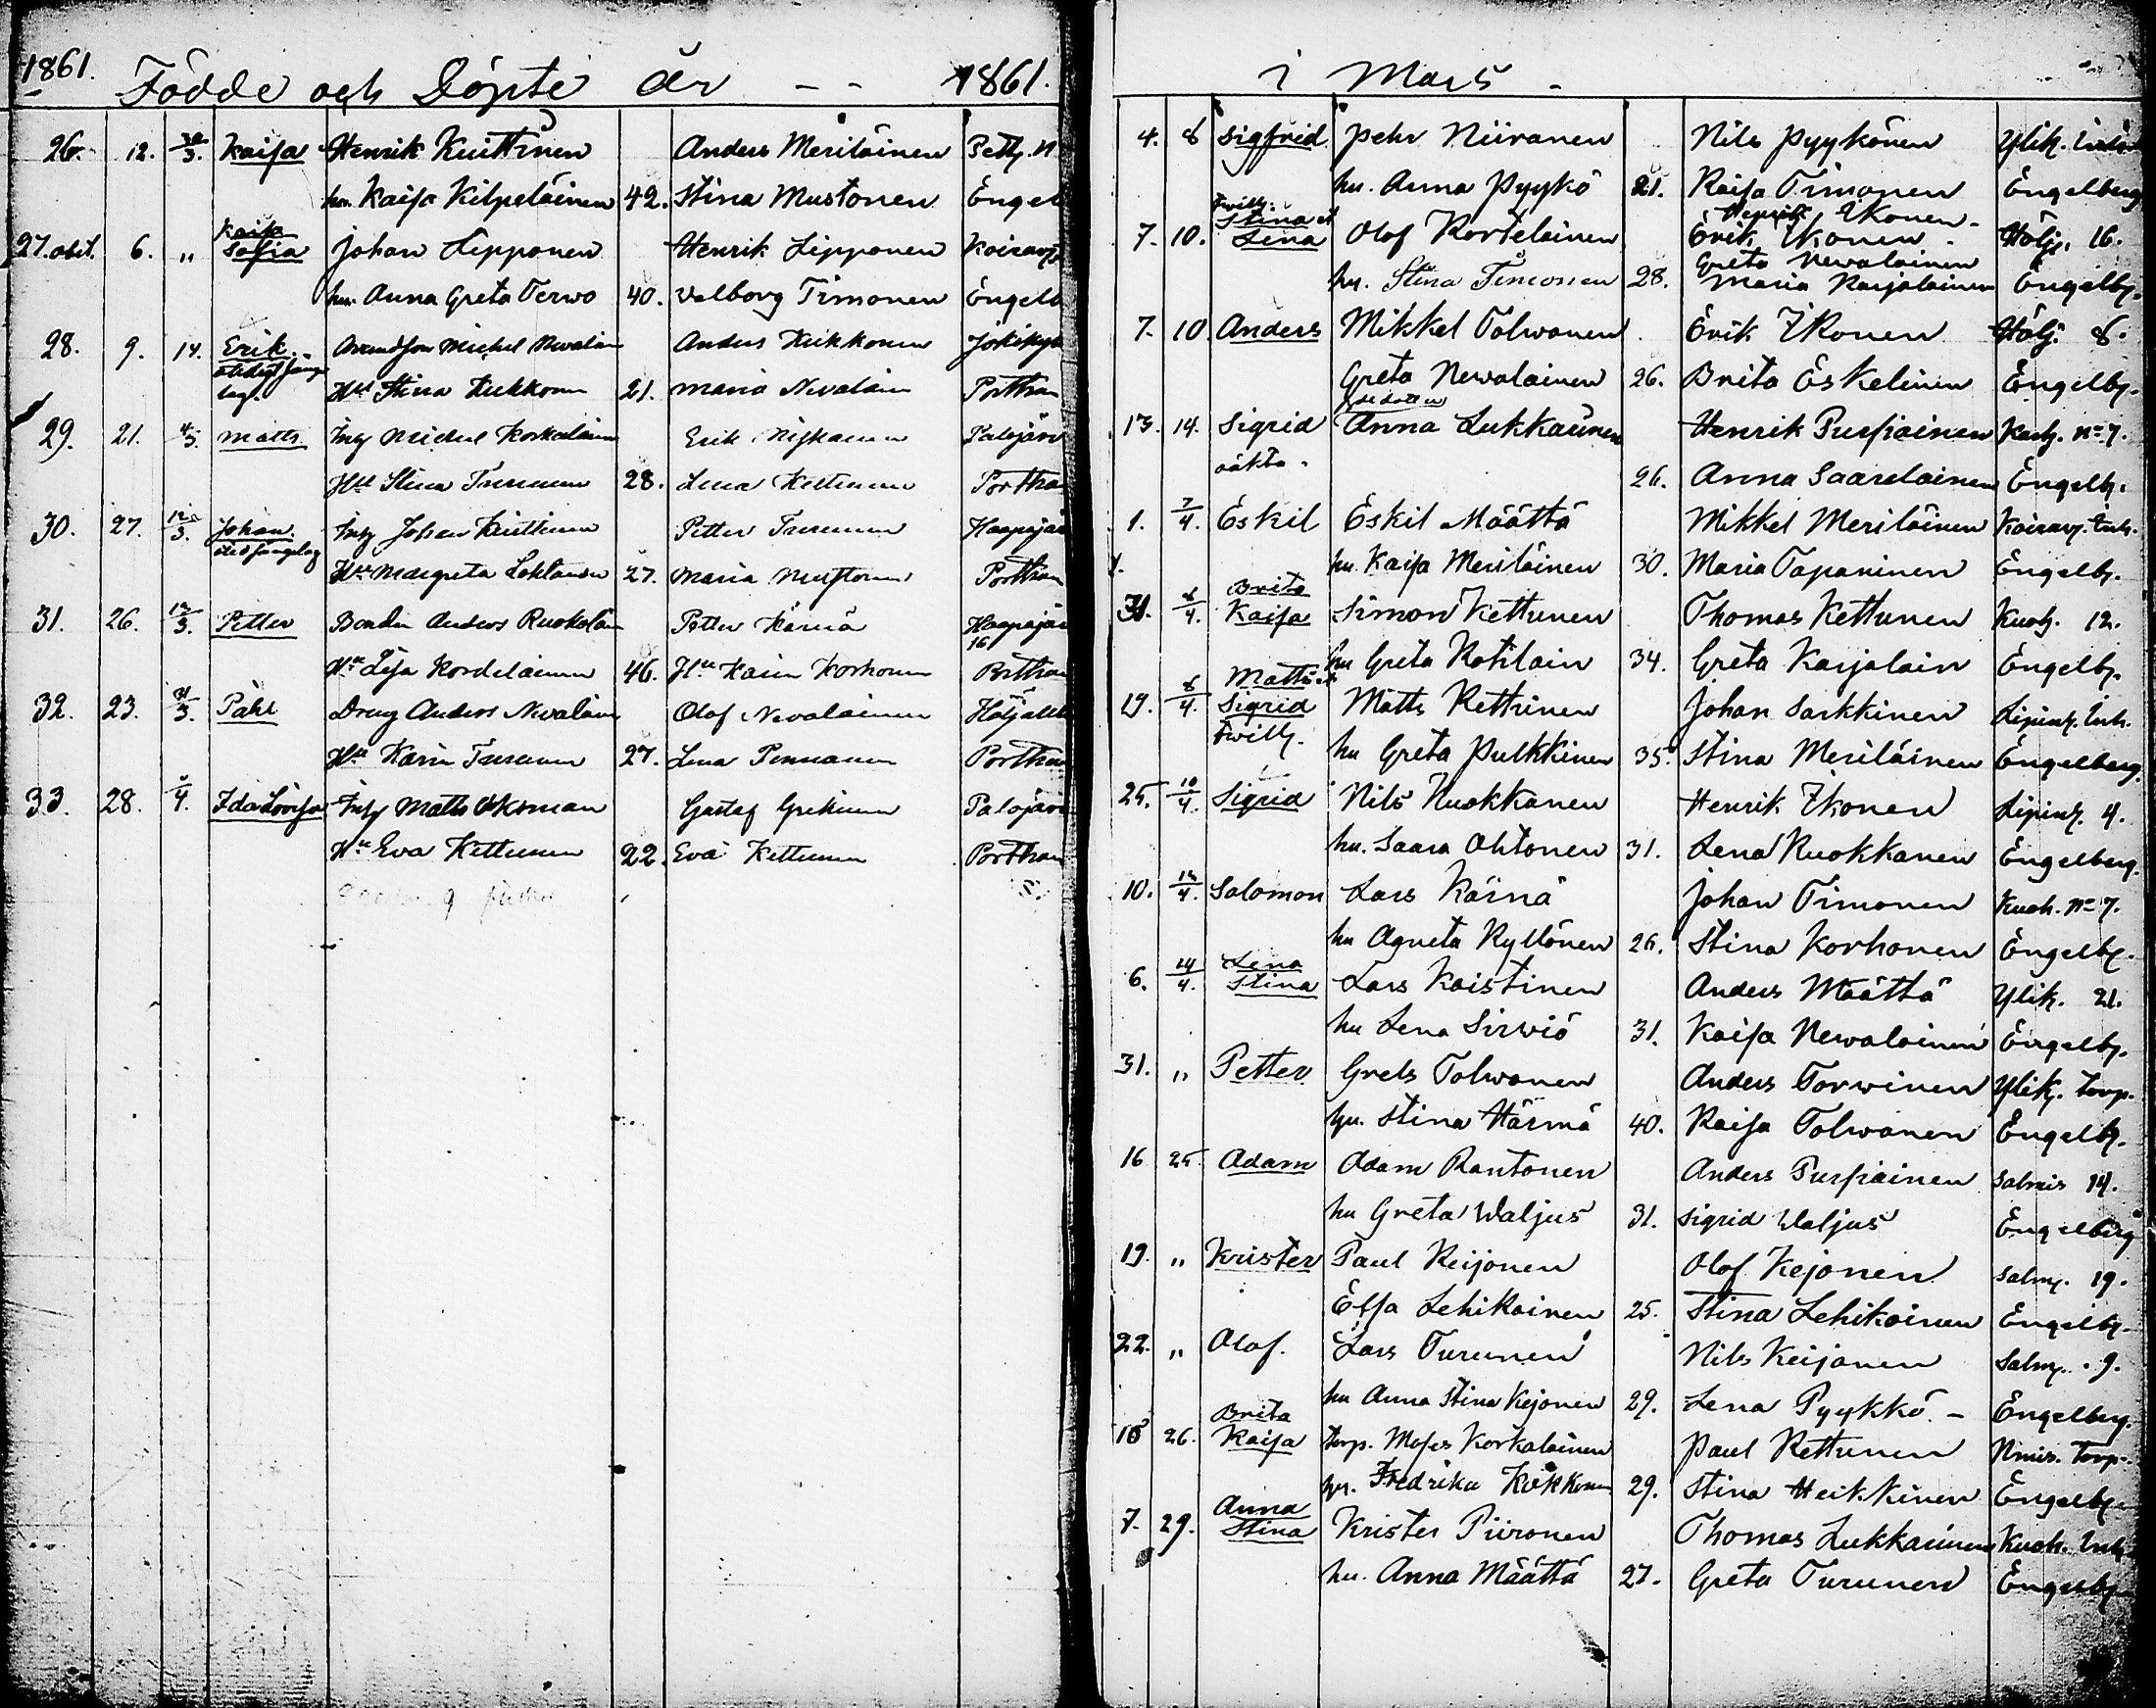 1861. Födde och Döpte år - - 1861.
26. 12. 30/3. Kaisa Henrik Kuittinen Anders Meriläinen Pettj. N
hu. Kaisa Kilpeläinen 42. Stina Mustonen Engel
Kaisa
27. obit. 6. " Sofia Johan Lipponen Henrik Lipponen Koirav
hu. Anna Greta Terwo 40. Valborg Timonen Engelb
28. 9. 14. Erik Michel Nevalain Anders Kukkonen Jokikyl
Hu Stina Kukkonen 21. Maria Nevalain Porthan
29. 21. 4/3. Matts Inh Michel Korkalainen Erik Nykänen Palojärv
Hu Stina Turunen 28. Lena Kettunen Porthan
30. 27. 12/3. Johan Inh Johan Kuittinen Petter Turunen Haapajär
Hu Margreta 27. Maria Mustonen Porthan
31. 26. 12/3. Petter Bonden Anders Ruokolain Petter Kärnä Haapajär
16
Hu Lisa Kordelainen 46. Hu Karin Korhonen Porthan
32. 23. 31/3. Påhl Dreng Anders Nevalain Olof Nevalainen Höljäkk
Hu Karin Turunen 27. Lena Pennanen Porthan
33. 28. 4. Ida Lovisa Inh Matts Gustaf Palojärv
Hu Eva Kettunen 22. Eva Kettunen Porthan
i Mars -
4. 8 Sigfrid Pehr Niiranen Nils Pyykönen Ylik.
hu. Anna Pyykö 21. Kaisa Timonen Engelberg
Twill: Stina et Henrik Ikonen -
7. 10. Lena Olof Kortelainen Erik Ikonen - Hölj. 16.
Greta Newalainen
hu. Stina Timonen 28. Maria Karjalainen Engelb.
7. 10 Anders Mikkel Tolwanen Erik Ikonen Hölj. 8.
Greta Newalainen 26. Brita Eskelinen Engelb.
13. 14. Sigrid Anna Lukkarinen Henrik Pursiainen Kuoh. No 7.
oäkta. 26. Anna Saarelainen Engelb.
1. 7/4. Eskil Eskil Määttä Mikkel Meriläinen Koirav. Inh.
hu. Kaisa Meriläinen 30. Maria Tapaninen Engelb.
Brita
31. 8/4. Kaisa Simon Kettunen Thomas Kettunen Kuoh. 12.
hu Greta Kotilain 34. Greta Karjalain Engelb.
Matts et
19. 8/4. Sigrid Matts Kettunen Johan Sarkkinen Lipin. Inh.
Twill. hu Greta Pulkkinen 35. Stina Meriläinen Engelberg.
25. 10/4. Sigrid Nils Kuokkanen Henrik Ikonen Lipin. 4.
hu. Saara Ohtonen 31. Lena Kuokkanen Engelberg.
10. 12/4. Salomon Lars Kärnä Johan Timonen Kuoh. No 7.
hu Agneta Kyllönen 26. Stina Korhonen Engelb.
Lena
6. 14/4. Stina Lars Kaistinen Anders Määttä Ylik. 21.
hu Lena Sirwiö 31. Kaisa Newalainen Engelb.
31. " Petter Grels Tolwanen Anders Torwinen Ylik. torp.
hu. Stina Härmä 40. Kaisa Tolwanen Engelb.
16 25. Adam Adam Rantonen Anders Pursiainen Salmis 14.
hu Greta Waljus 31. Sigrid Waljus Engelberg
19. " Krister Paul Keijonen Olof Kejonen Salm. 19.
Elsa Lehikoinen 25. Stina Lehikoinen Engelb.
22. " Olof. Lars Turunen Nils Keijonen Salm. 9.
hu Anna Stina Kejonen 29. Lena Pyykkö - Engelberg.
Brita
18 26. Kaisa torp. Moses Korkalainen Paul Kettunen torp.
hu. Fredrika Kokkonen 29. Stina Heikkinen Engelb.
Anna
7. 29. Stina Krister Piironen Thomas Lukkarinen Kuoh. Inh.
hu. Anna Määttä 27. Greta Turunen Engelb.